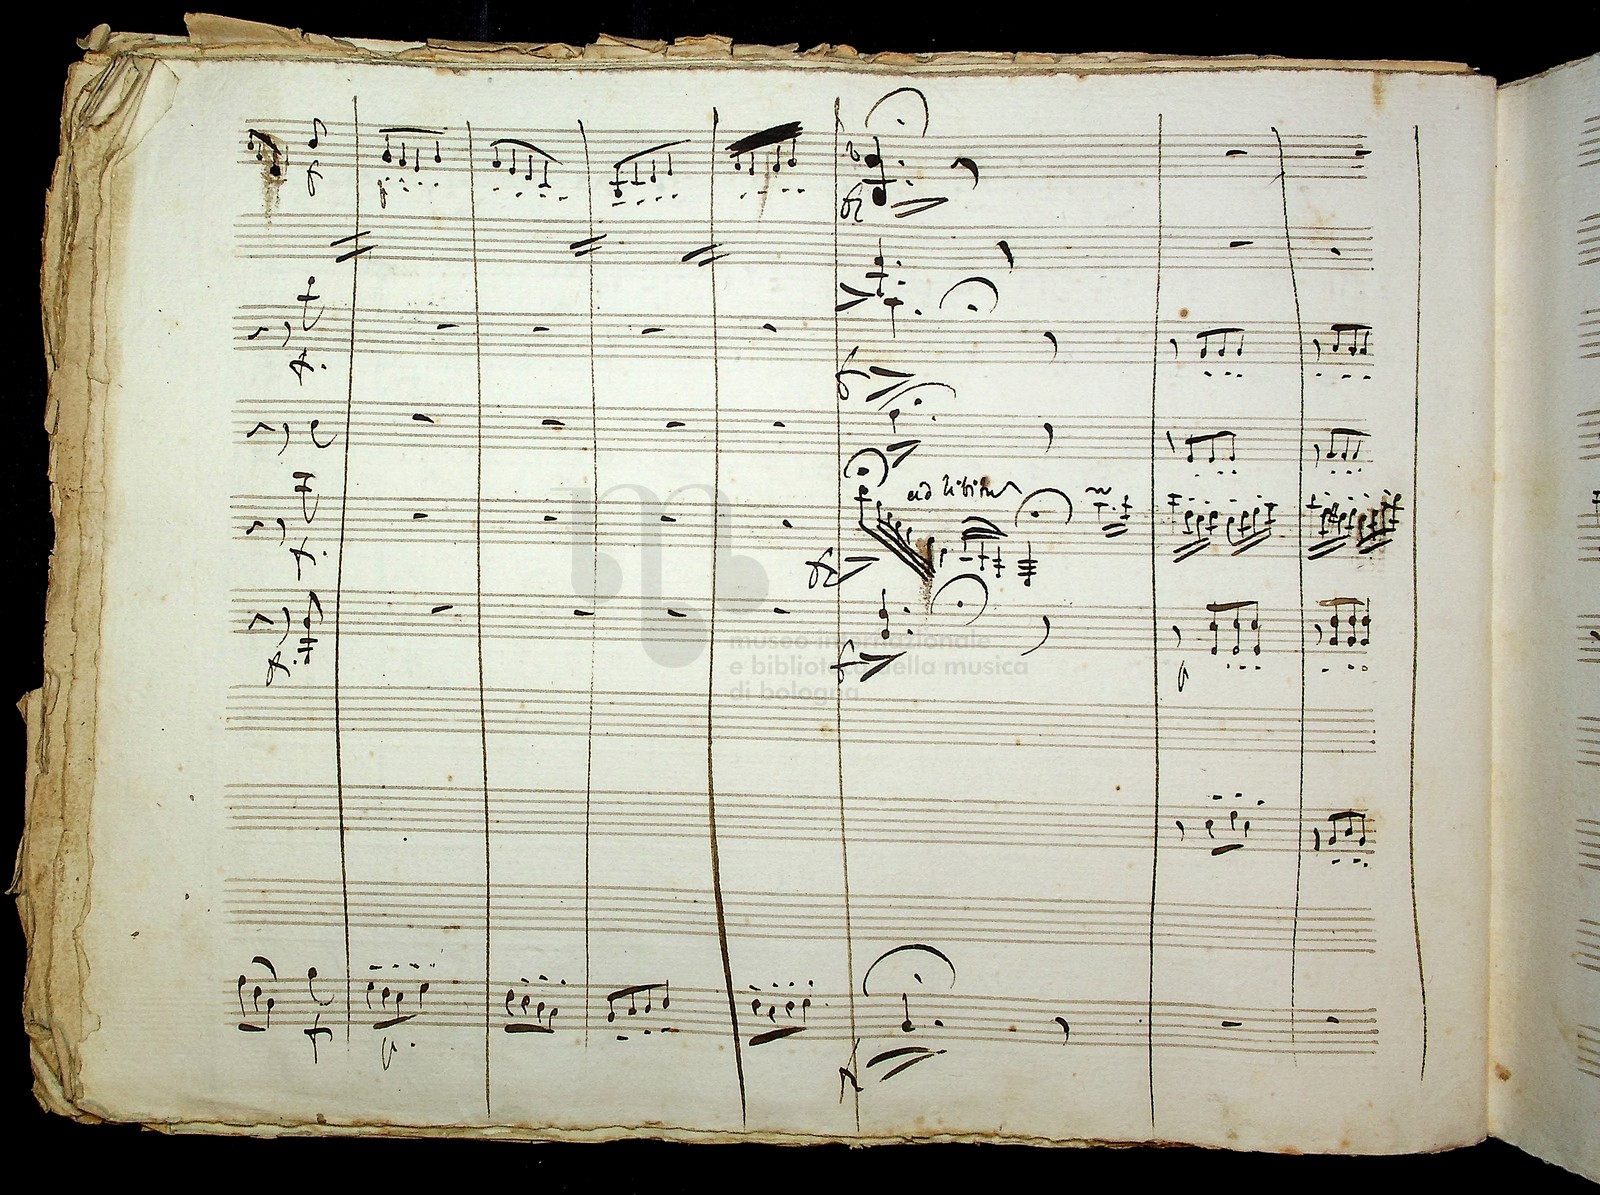 f
p
fz
f.
f
ad libitum
f.
fz
f.
f
p
museo internazionale
e biblioteca della musica
di bologna
f
p.
f